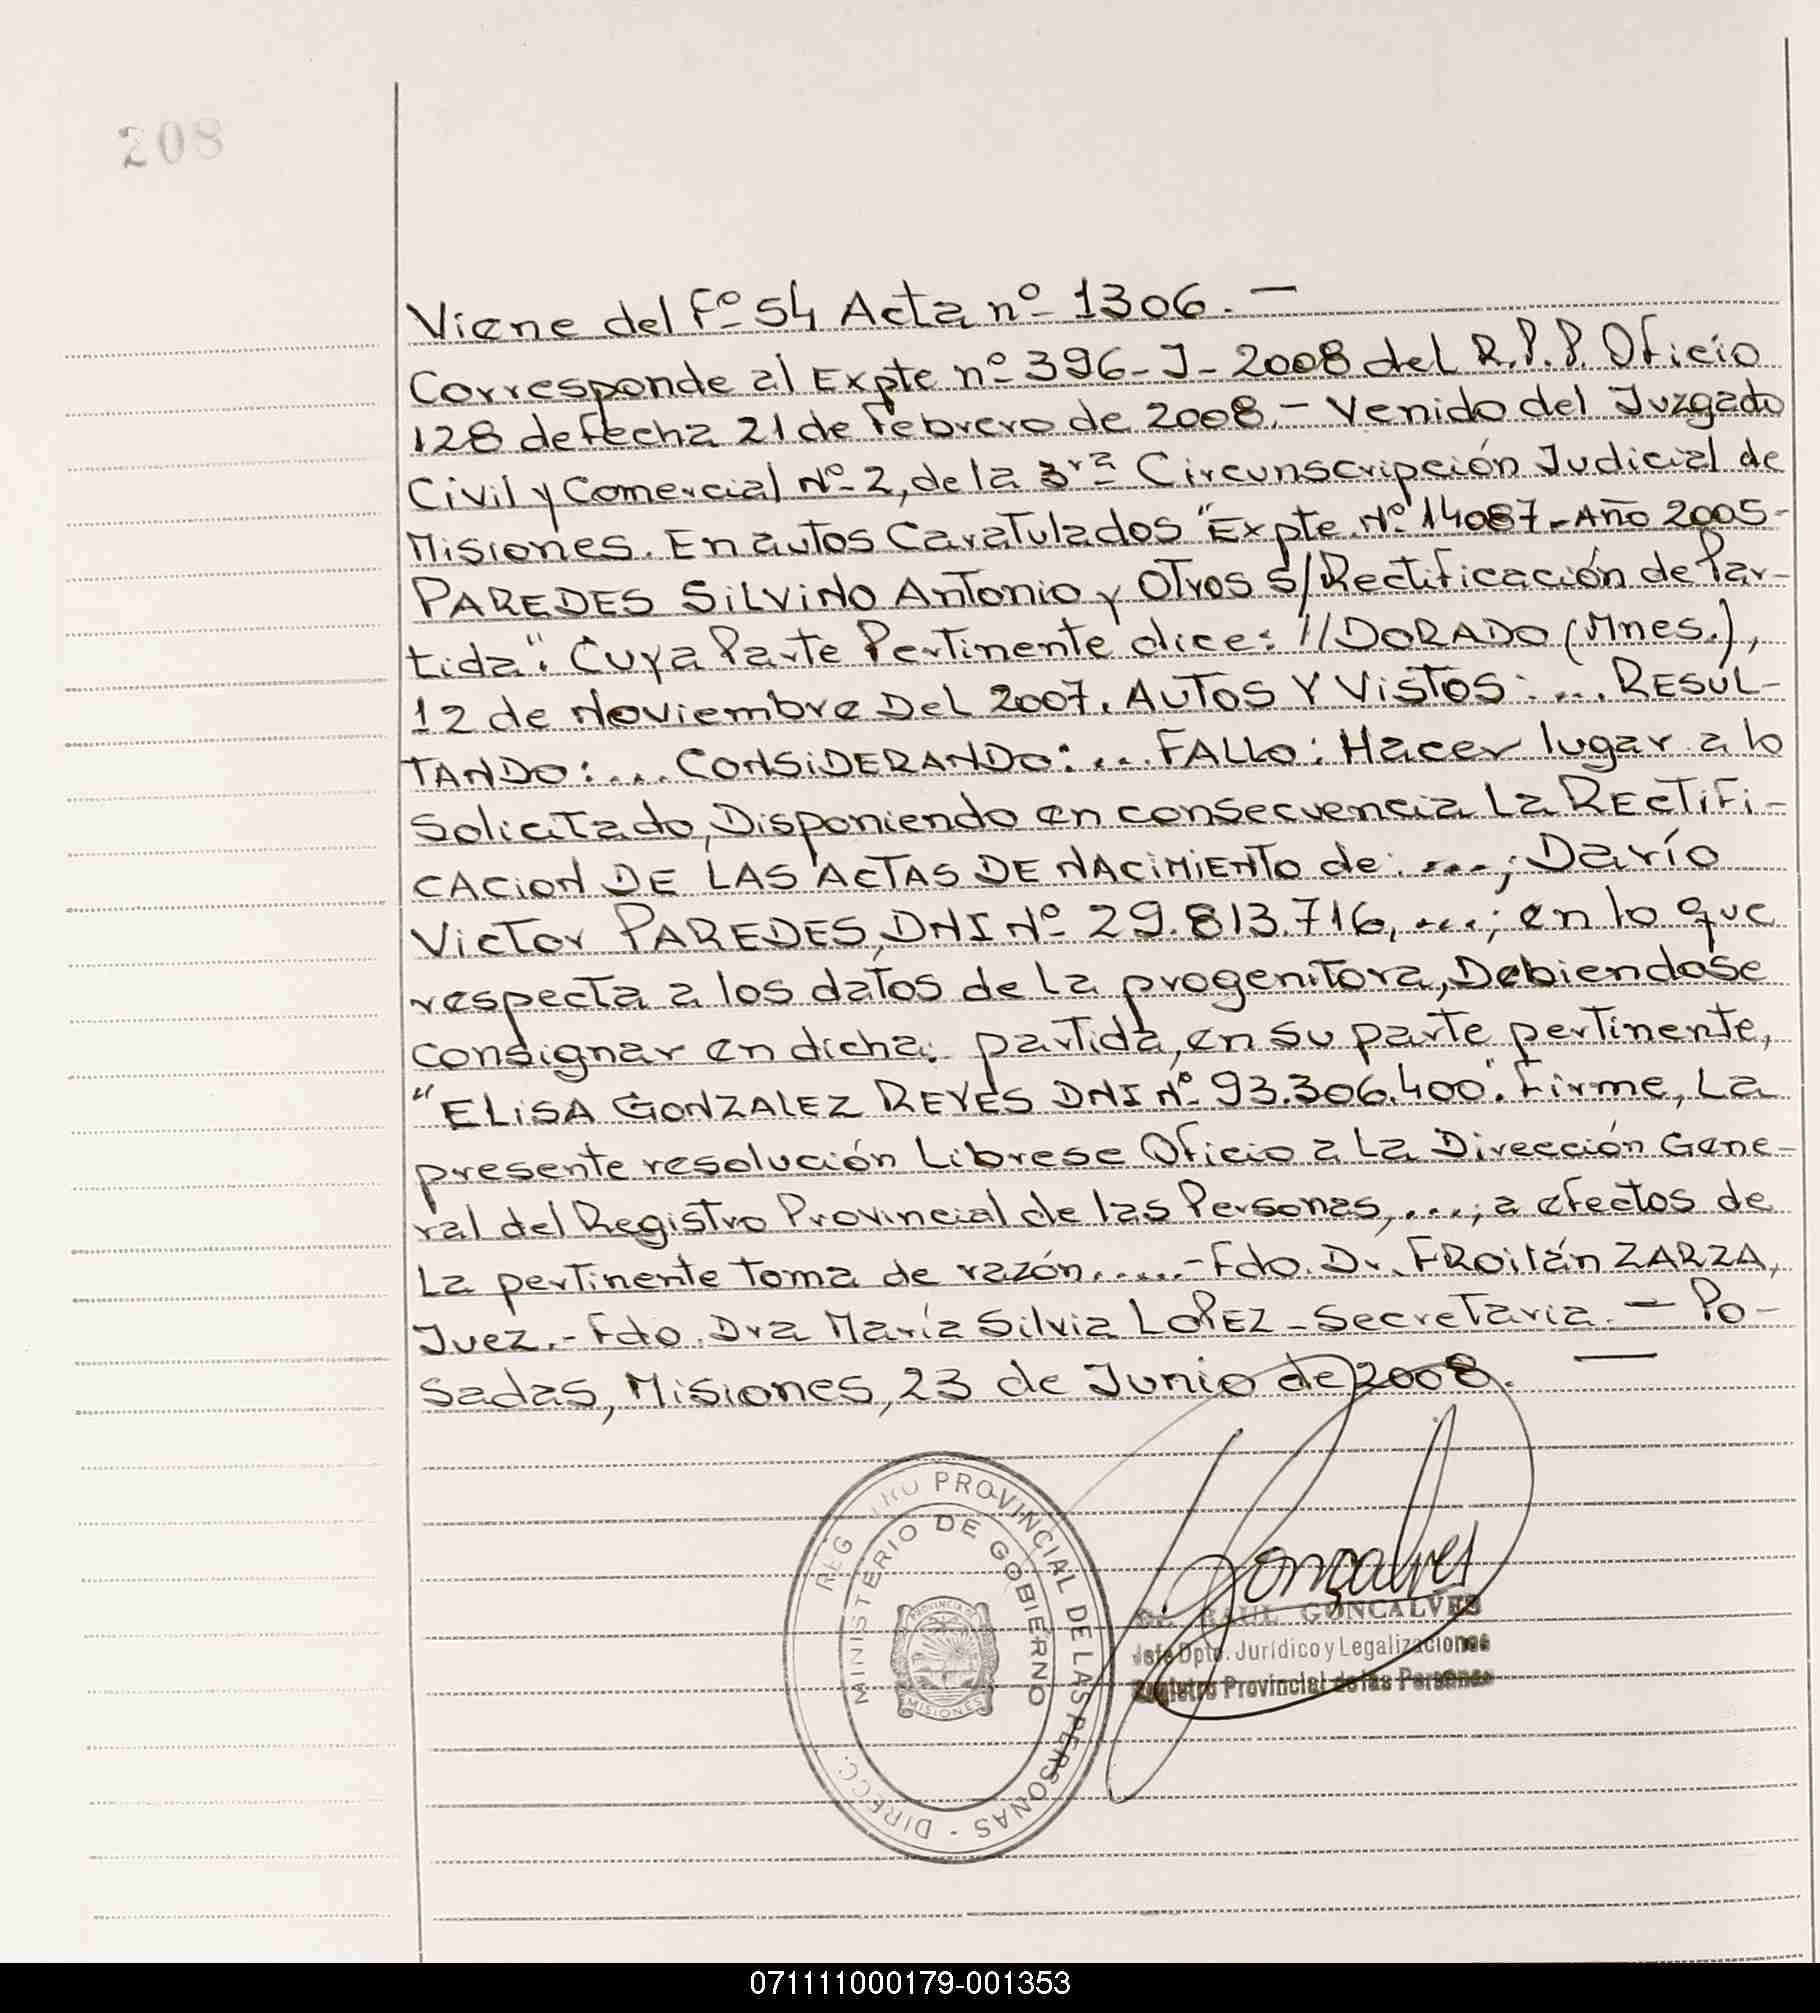 208
Viene del fº 54 Acta nº 1306. —
Corresponde al Expte nº 396-J-2008 del R.P.P. Oficio
128 de fecha 21 de Febrero de 2008.- Venido del Juzgado
Civil y Comercial Nº 2, de la 3ra Circunscripción Judicial de
Misiones. En autos Caratulados "Expte. Nº 14087-Año 2005-
PAREDES SILVINO Antonio y Otros S/Rectificación de Par-
tida". Cuya Parte Pertinente dice: "//DORADO (Mnes.),
12 de Noviembre Del 2007. AUTOS Y VISTOS:... RESUL-
TANDO:... CONSIDERANDO:... FALLO: Hacer lugar a lo
Solicitado, Disponiendo en consecuencia La RECTIFI-
CACION DE LAS ACTAS DE NACIMIENTO de: ...; Darío
Victor PAREDES, DNI Nº 29.813.716, ...; en lo que
respecta a los datos de la progenitora, Debiendose
consignar en dicha: partida, en su parte pertinente,
"ELISA GONZALEZ REYES DNI Nº 93.306.400". Firme, La
presente resolución Librese Oficio a La Dirección Gene-
ral del Registro Provincial de las Personas, ...; a efectos de
La pertinente toma de razón.....-Fdo. Dr. FROilán ZARZA,
Juez.- Fdo. Dra María Silvia LOPEZ - Secretaria. — Po-
sadas, Misiones, 23 de Junio de 2008. —
REGISTRO PROVINCIAL DE LAS PERSONAS - DIRECC.
MINISTERIO DE GOBIERNO
PROVINCIA DE
MISIONES
Gonçalves
Dr. RAUL GONCALVES
Jefe Dpto. Jurídico y Legalizaciones
Registro Provincial de las Personas
071111000179-001353